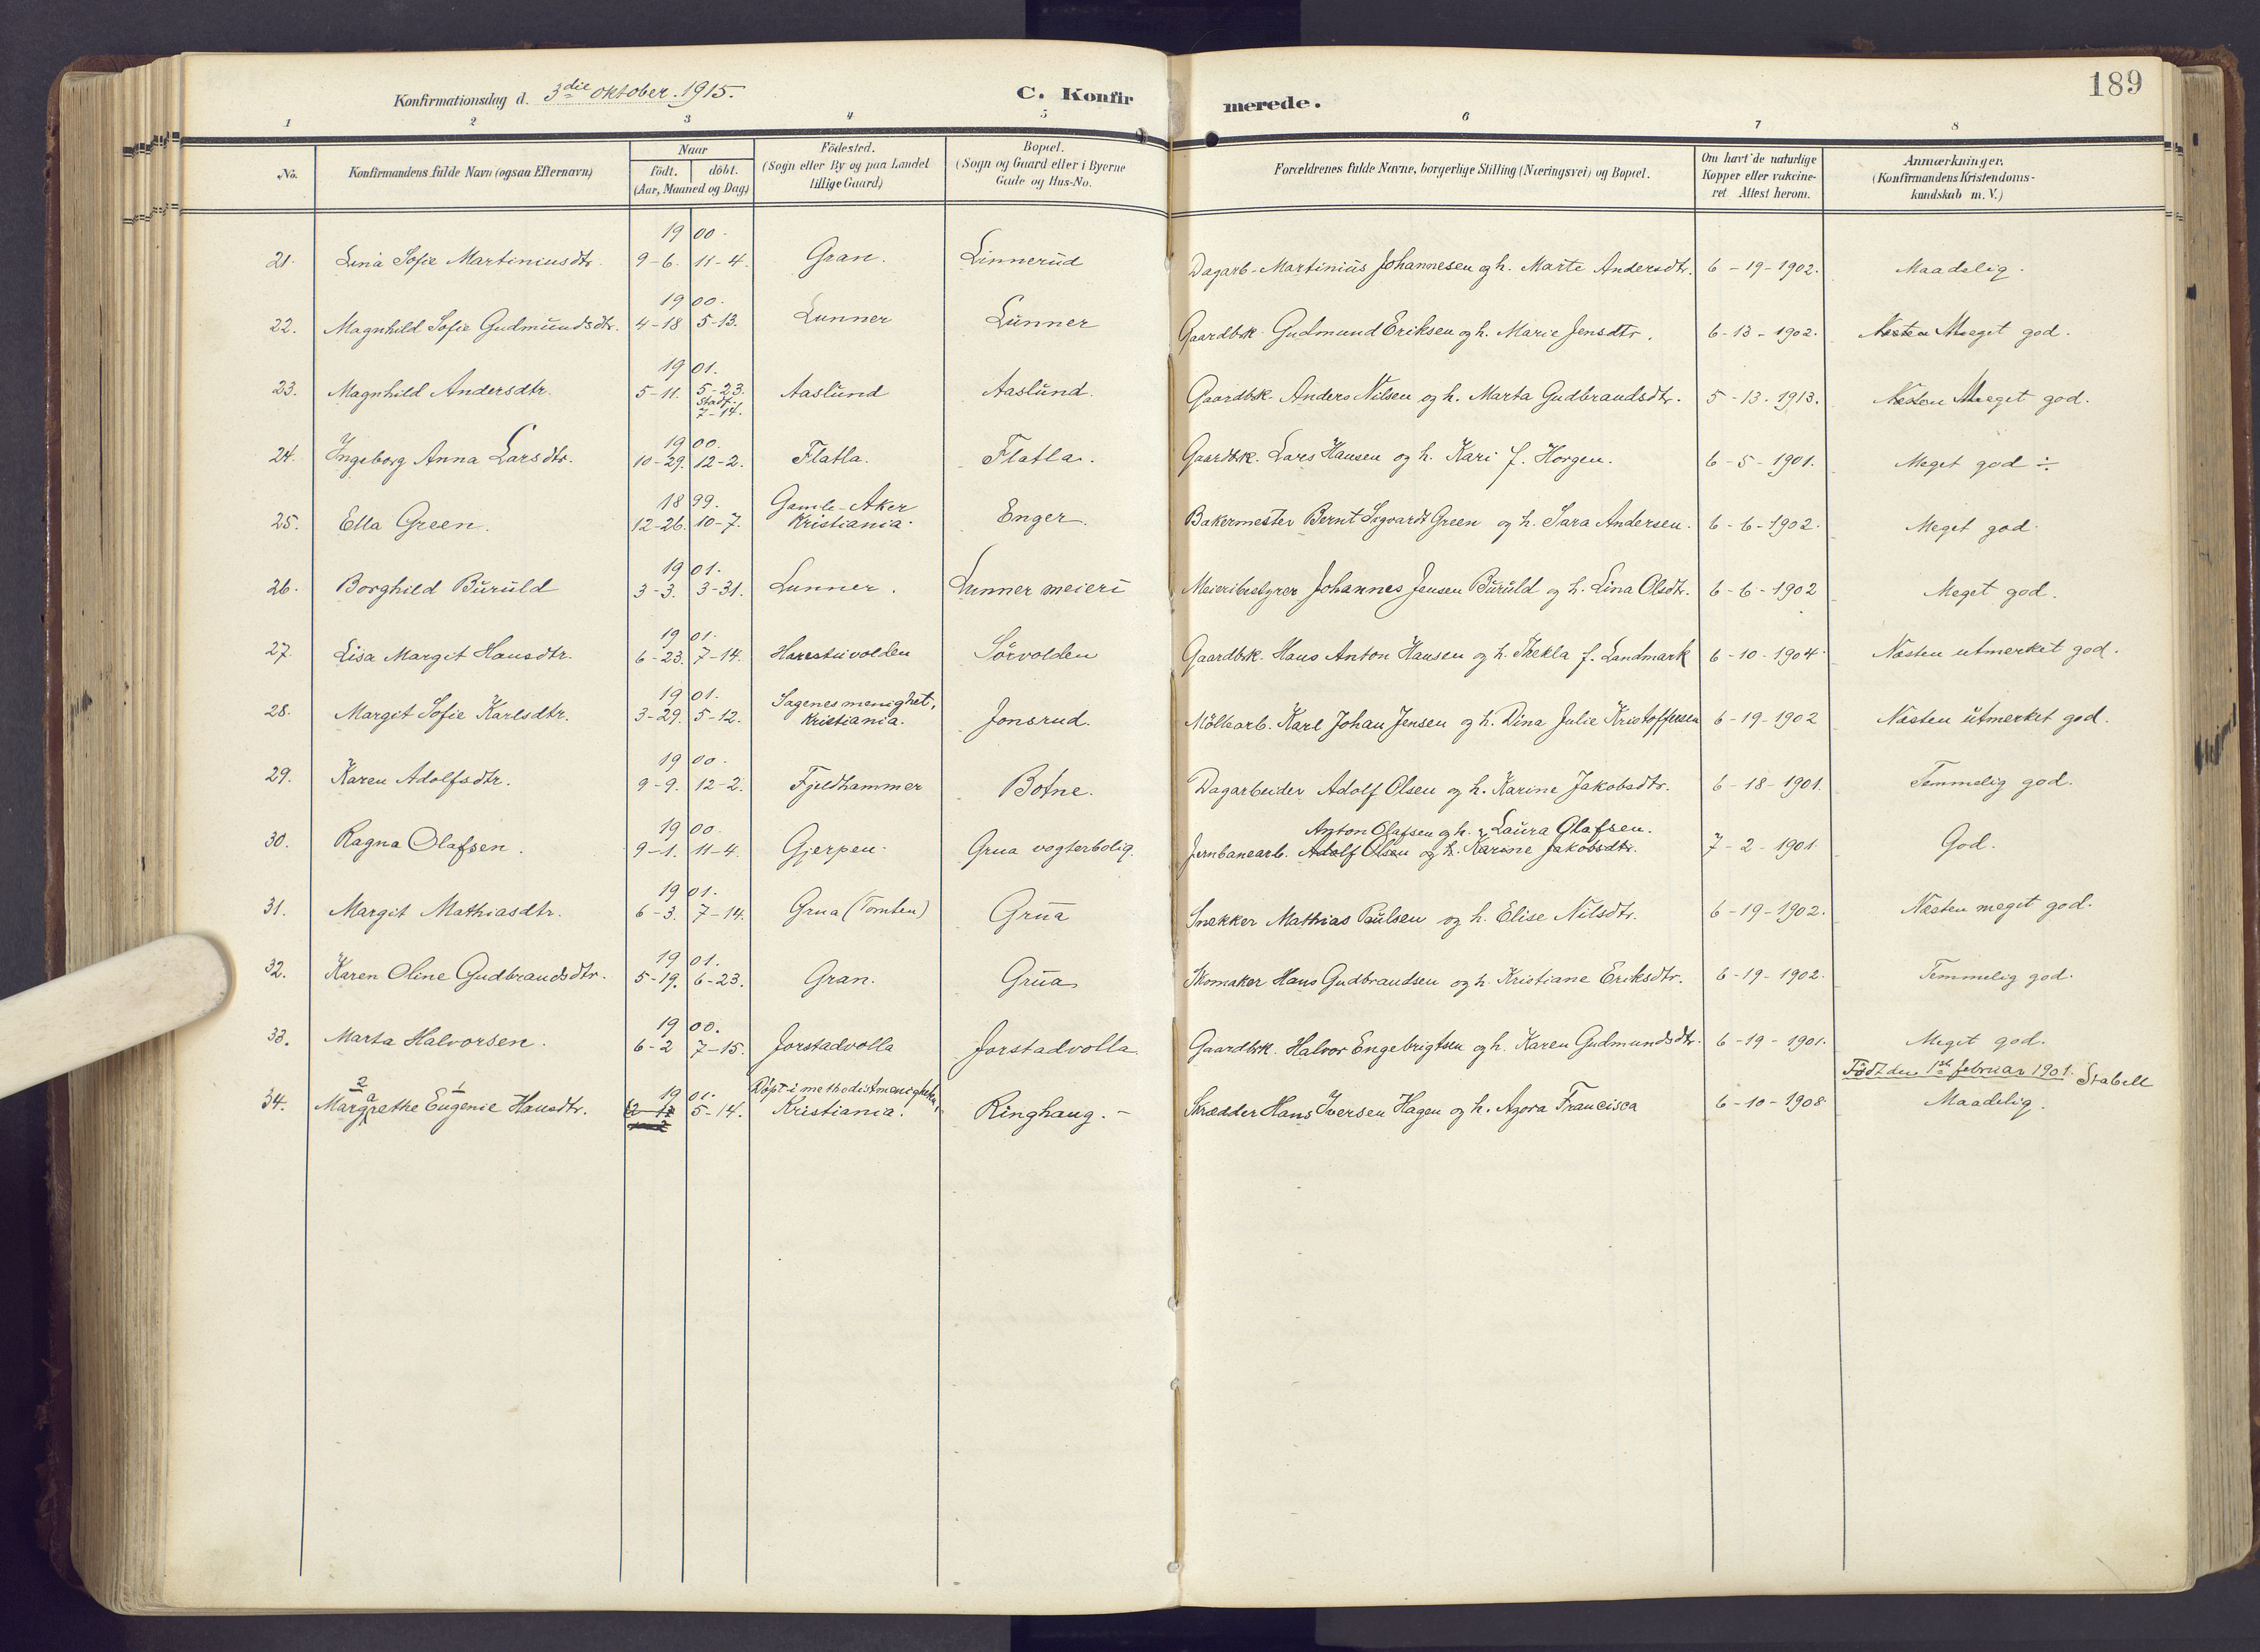 Konfirmationsdag d. 3die oktober. 1915. C. Konfirmerede. 189
1 2 3 4 5 6 7 8
No. Konfirmandens fulde Navn (ogsaa Efternavn) Naar födt. döbt. (Aar, Maaned og Dag) Födested. (Sogn eller By og paa Landet tillige Gaard) Bopæl. (Sogn og Gaard eller i Byerne Gade og Hus-No. Forældrenes fulde Navne, borgerlige Stilling (Næringsvei) og Bopæl. Om havt de naturlige Kopper eller vakcineret. Attest herom. Anmærkninger. (Konfirmandens Kristendomskundskab m. V.)
1900.
21. Lina Sofie Martiniusdtr. 9-6. 11-4. Gran. Linnerud Dagarb. Martinius Johannesen og h. Marte Andersdtr. 6-19-1902. Maadelig.
1900.
22. Magnhild Sofie Gudmundsdtr. 4-18 5-13. Lunner Lunner Gaardbk. Gudmund Eriksen og h. Marie Jensdtr. 6-13-1902. Næsten Meget god.
1901.
23. Magnhild Andersdtr. 5-11. 5-23. Stadf. 7-14. Aaslund Aaslund. Gaardbk. Anders Nilsen og h. Marta Gudbrandsdtr. 5-13-1913. Næsten Meget god.
1900.
24. Ingeborg Anna Larsdtr. 10-29. 12-2. Flatla. Flatla. Gaardbk. Lars Hansen og h. Kari f. Horgen. 6-5-1901. Meget god ÷
1899.
25. Ella Green. 12-26. 10-7. Gamle-Aker Kristiania. Enger. Bakermester Bernt Sigvardt Green og h. Sara Andersen. 6-6-1902. Meget god
1901.
26. Borghild Buruld 3-3. 3-31. Lunner. Lunner meieri Meieribestyrer Johannes Jensen Buruld og h. Lina Olsdtr. 6-6-1902 Meget god.
1901.
27. Lisa Margit Hansdtr. 6-23. 7-14. Harestuvolden Sörvolden Gaardbk. Hans Anton Hansen og h. Thekla f. Landmark 6-10-1904. Næsten utmerket god.
1901.
28. Margit Sofie Karlsdtr. 3-29. 5-12. Sagenes menighet, Kristiania. Jonsrud. Möllearb. Karl Johan Jensen og h. Dina Julie Kristoffersen 6-19-1902 Næsten utmerket god.
1900.
29. Karen Adolfsdtr. 9-9. 12-2. Fjeldhammer Botne. Dagarbeider Adolf Olsen og h. Karine Jakobsdtr. 6-18-1901. Temmelig god.
1900. Anton Olafsen og h. Laura Olafsen.
30. Ragna Olafsen. 9-1. 11-4. Gjerpen. Grua vogterbolig. Jernbanearb. Adolf Olsen og h. Karine Jakobsdtr. 7-2-1901 God.
1901.
31. Margit Mathiasdtr. 6-3. 7-14. Grua (Tomten) Grua Snekker Mathias Paulsen og h. Elise Nilsdtr. 6-19-1902. Næsten meget god.
1901.
32. Karen Oline Gudbrandsdtr. 5-19. 6-23. Gran. Grua Skomaker Hans Gudbrandsen og h. Kristiane Eriksdtr. 6-19-1902. Temmelig god.
1900.
33. Marta Halvorsen. 6-2 7-15. Jorstadvolla Jorstadvolla Gaardbk. Halvor Engebrigtsen og h. Karen Gudmundsdtr. 6-19-1901. Meget god.
2 1 1901. Döpt i methodistmenigheten, Födt den 1ste februar 1901. Stabell
34. Margarethe Eugenie Hansdtr. 5-14. Kristiania. Ringhaug. Skrædder Hans Iversen Hagen og h. Agora Francisca 6-10-1908. Maadelig.